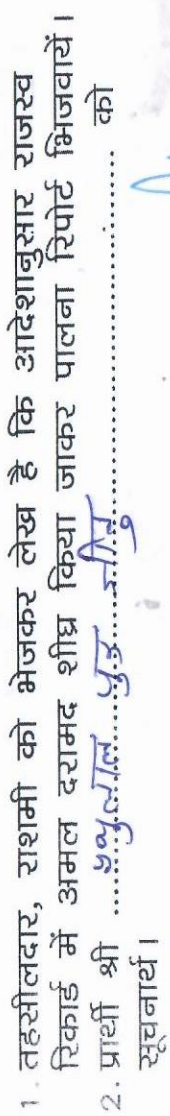 1. तहसीलदार, राशमी को भेजकर लेख है कि आदेशानुसार राजस्व
रिकार्ड में अमल दरामद शीघ्र किया जाकर पालना रिपोर्ट भिजवायें।
2. प्रार्थी श्री ......................................... को
सूचनार्थ।